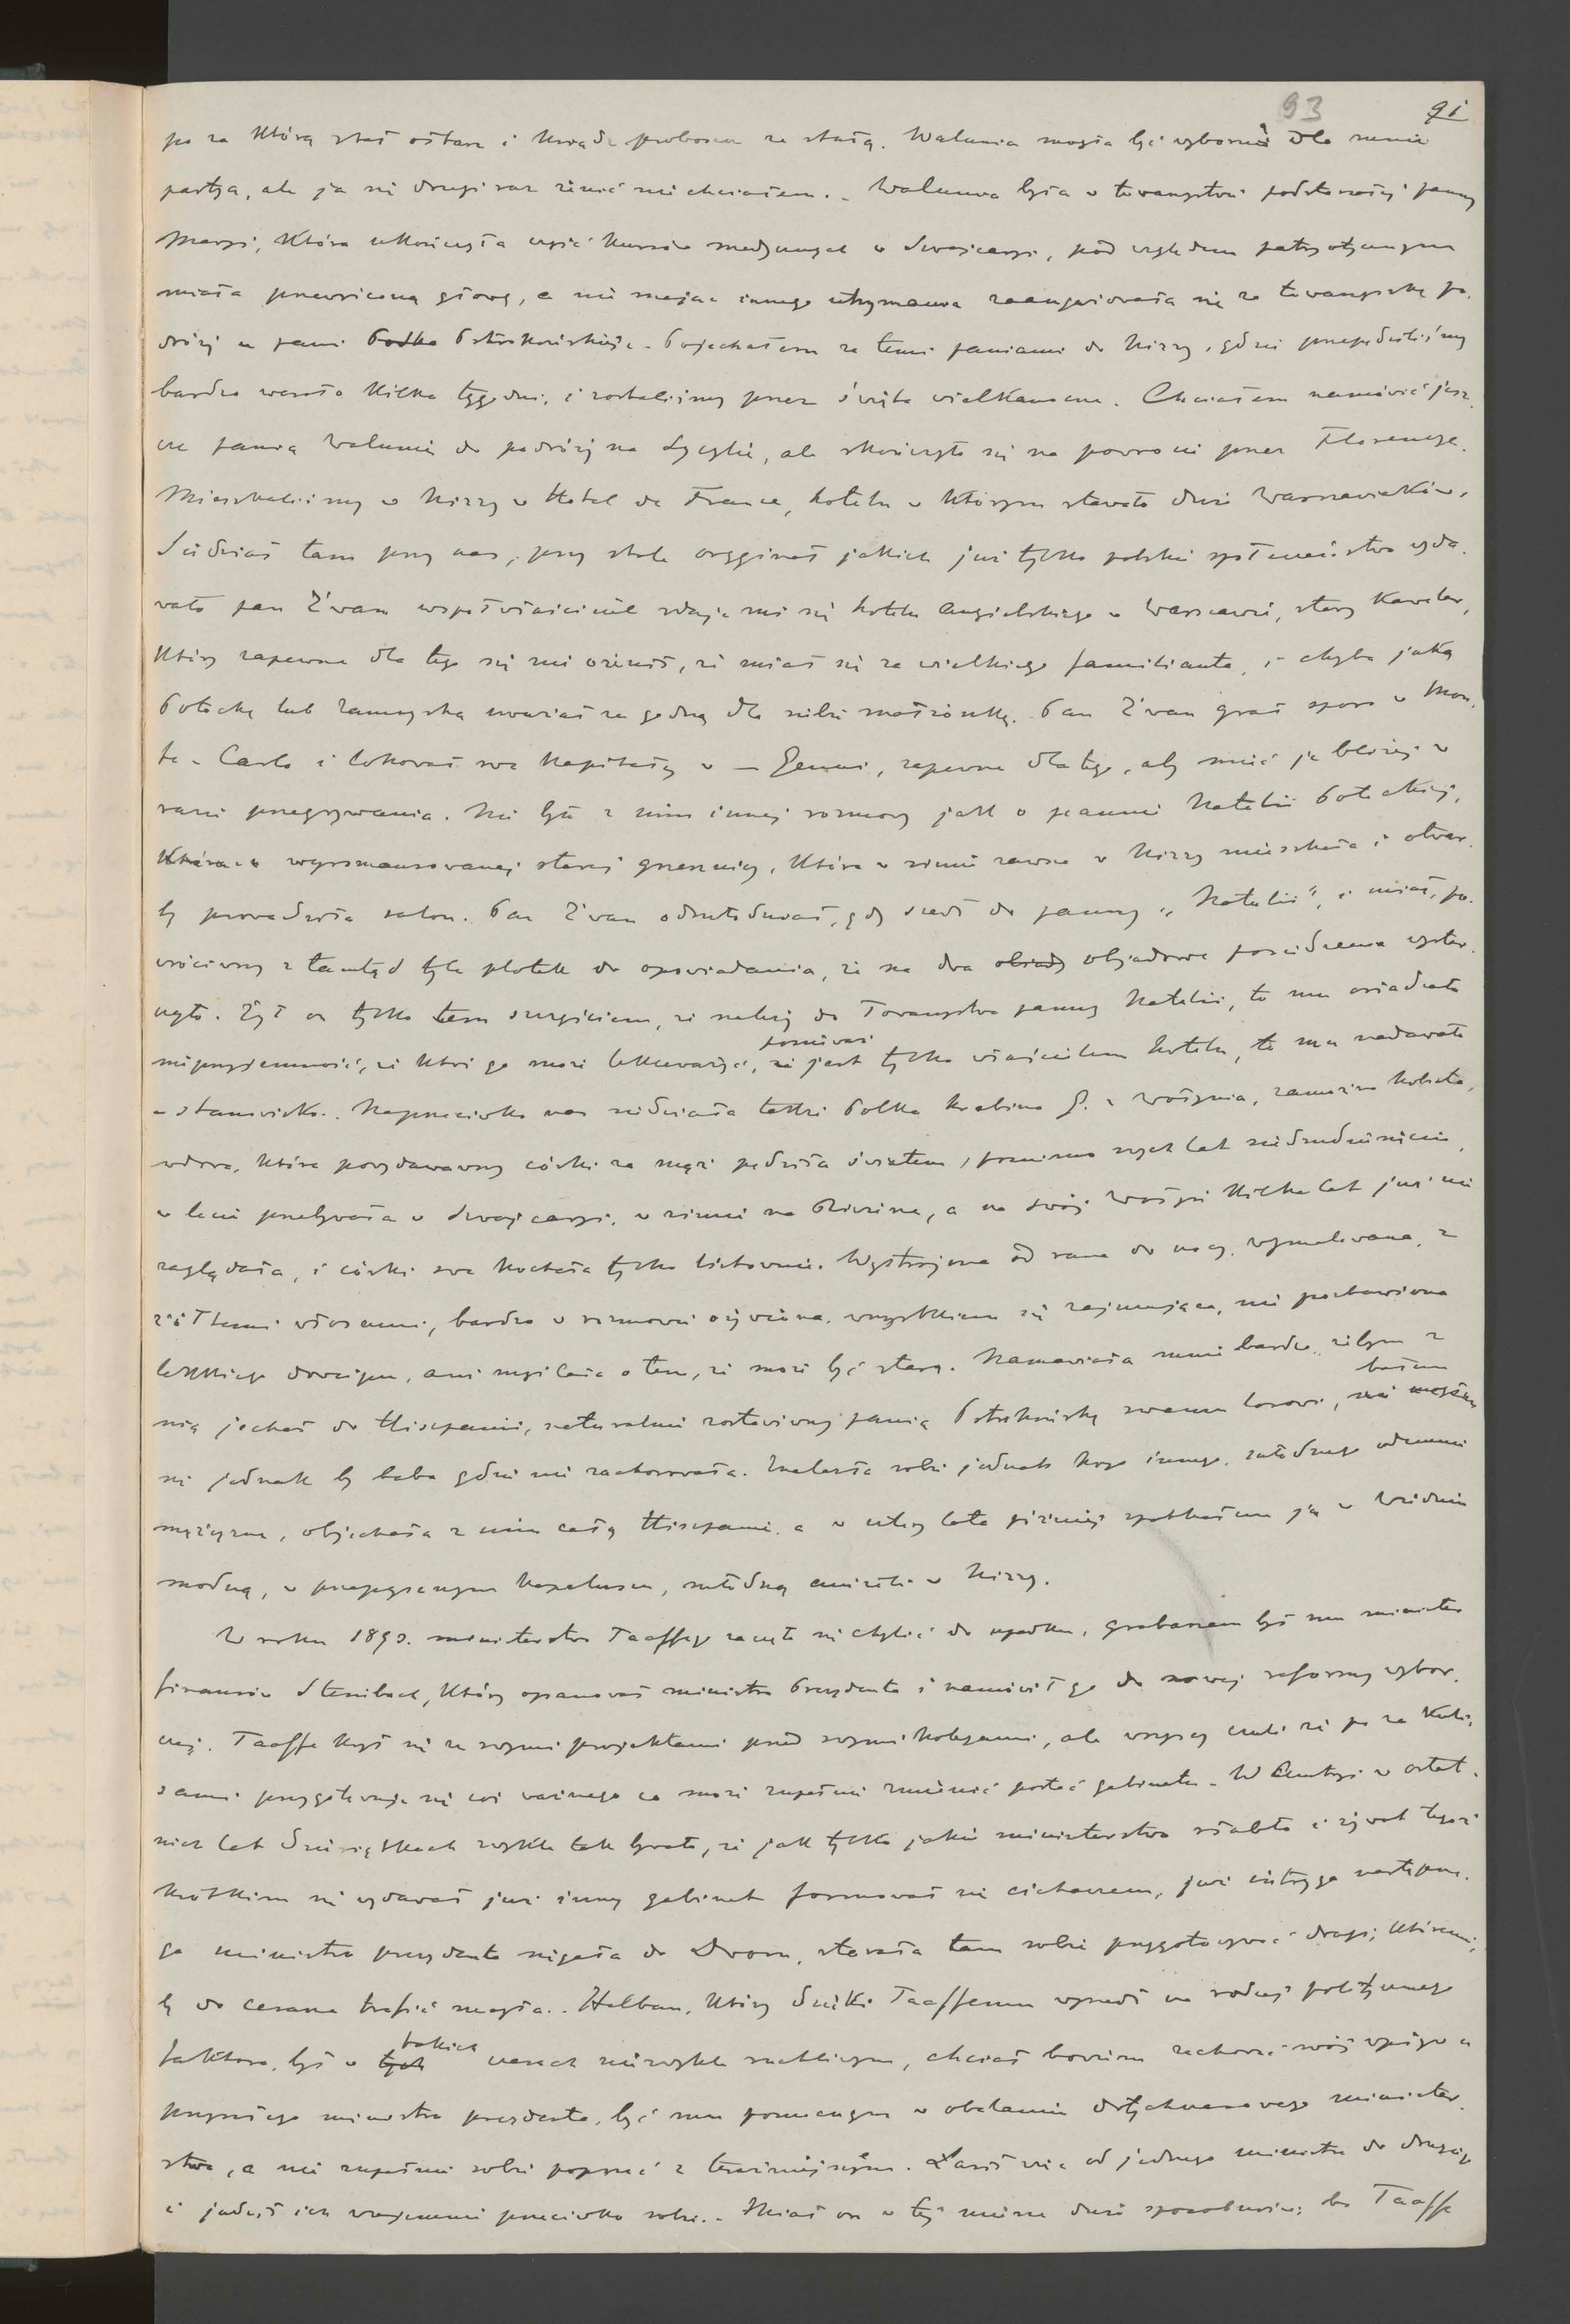 93 91
po za którą stał ołtarz i ksiądz proboszcz ze stułą. Walunia mogła być wyborną dla mnie
partya, ale ja się drugi raz żenić nie chciałem. - Walunia była w towarzystwie podstarzałej panny
Maryi, która ukończyła część kursów medycznych w Szwajcaryi, pod względem patryotycznym
miała przewróconą głowę, a nie mając innego utrzymania zaangażowała się za towarzyszkę po-
dróży u pani Ostrokońskiej. Pojechałem za temi paniami do Nizzy, gdzie przepędziliśmy
bardzo wesoło kilka tygodni, i zostaliśmy przez święta wielkanocne. Chciałem namówić jesz-
cze panią Walunię do podróży na Sycylię, ale skończyło się na powrocie przez Florencyę.
Mieszkaliśmy w Nizzy w Hotel de France, hotelu w którym stawało dużo Warszawiaków.
Siedział tam przy nas, przy stole oryginał jakich już tylko polskie społeczeństwo wyda-
wało pan Żwan współwłaściciel zdaje mi się hotelu Angielskiego w Warszawie, stary kawaler,
który zapewne dla tego się nie ożenił, że miał się za wielkiego familianta, i chyba jaką
Potocką lub Zamoyską uważał za godną dla siebie małżonkę. Pan Żwan grał sporo w Mon-
te-Carlo i lokował swe kapitały w - Genui, zapewne dla tego, aby mieć je bliżej w
razie przegrywania. Nie było z nim innej rozmowy jak o pannie Natalii Potockiej,
wyromansowanej starej grzesznicy, która w zimie zawsze w Nizzy mieszkała i otwar-
ty prowadziła salon. Pan Żwan odmłodniał, gdy szedł do panny „Natalii", i miał, po-
wróciwszy z tamtąd tyle plotek do opowiadania, że na dwa obiady objadowe posiedzenia wystar-
czyło. Żył on tylko tem szczęściem, że należy do Towarzystwa panny Natalii, to mu osładzało
nieprzyjemność, że ktoś go może lekceważyć, ponieważ że jest tylko właścicielem hotelu, to mu nadawało
stanowisko. Naprzeciwko nas siedziała także Polka hrabina P. z Wołynia, zamożna kobieta,
wdowa, która powydawawszy córki za mąż pędziła światem, pomimo swych lat siedmdziesięciu,
w lecie przebywała w Szwajcaryi, w zimie na Rivierze, a na swój Wołyń kilka lat już nie
zaglądała, i córki swe kochała tylko listownie. Wystrojona od rana do nocy, wymalowana, z
żółtemi włosami, bardzo w rozmowie ożywiona, wszystkiem się zajmująca, nie pozbawiona
lekkiego dowcipu, ani myślała o tem, że może być starą. Namawiała mnie bardzo, żebym z
nią jechał do Hiszpanii, naturalnie zostawiwszy panią Ostrokońską swemu losowi, bałem
się jednak by baba gdzie nie zachorowała. Znalazła sobie jednak kogo innego, młodszego odemnie
mężczyznę, objechała z nim całą Hiszpanię, a w cztery lata później spotkałem ją w Wiedniu
modną, w przepysznym kapeluszu, młodszą aniżeli w Nizzy.
W roku 1893. ministerstwo Taaffego zaczęło się chylić do upadku, grabarzem był mu minister
finansów Steinbach, który opanował ministra Prezydenta i namówił go do nowej reformy wybor-
czej. Taaffe krył się ze swymi projektami przed swymi kolegami, ale wszyscy czuli że po za kuli-
sami przygotowuje się coś ważnego co może zupełnie zmienić postać gabinetu. W Austryi w ostat-
nich lat dziesiątkach zwykle tak bywało, że jak tylko jakie ministerstwo słabło i żywot tegoż
krótkim się wydawał już inny gabinet formował się cichaczem, już intryga następne-
go ministra prezydenta sięgała do Dworu, starała tam sobie przygotowywać drogi, któremi
by do cesarza trafić mogła. Halban, który dzięki Taaffemu wyszedł na rodzaj politycznego
faktora, był w takich czasach niezwykle ruchliwym, chciał bowiem zachować swój wpływ u
przyszłego ministra prezydenta, być mu pomocnym w obalaniu dotychczasowego minister-
stwa, a nie zupełnie sobie popsuć z teraźniejszym. Łaził więc od jednego ministra do drugiego
i judził ich wzajemnie przeciwko sobie. - Miał on w tej mierze dużo sposobności, bo Taaffe